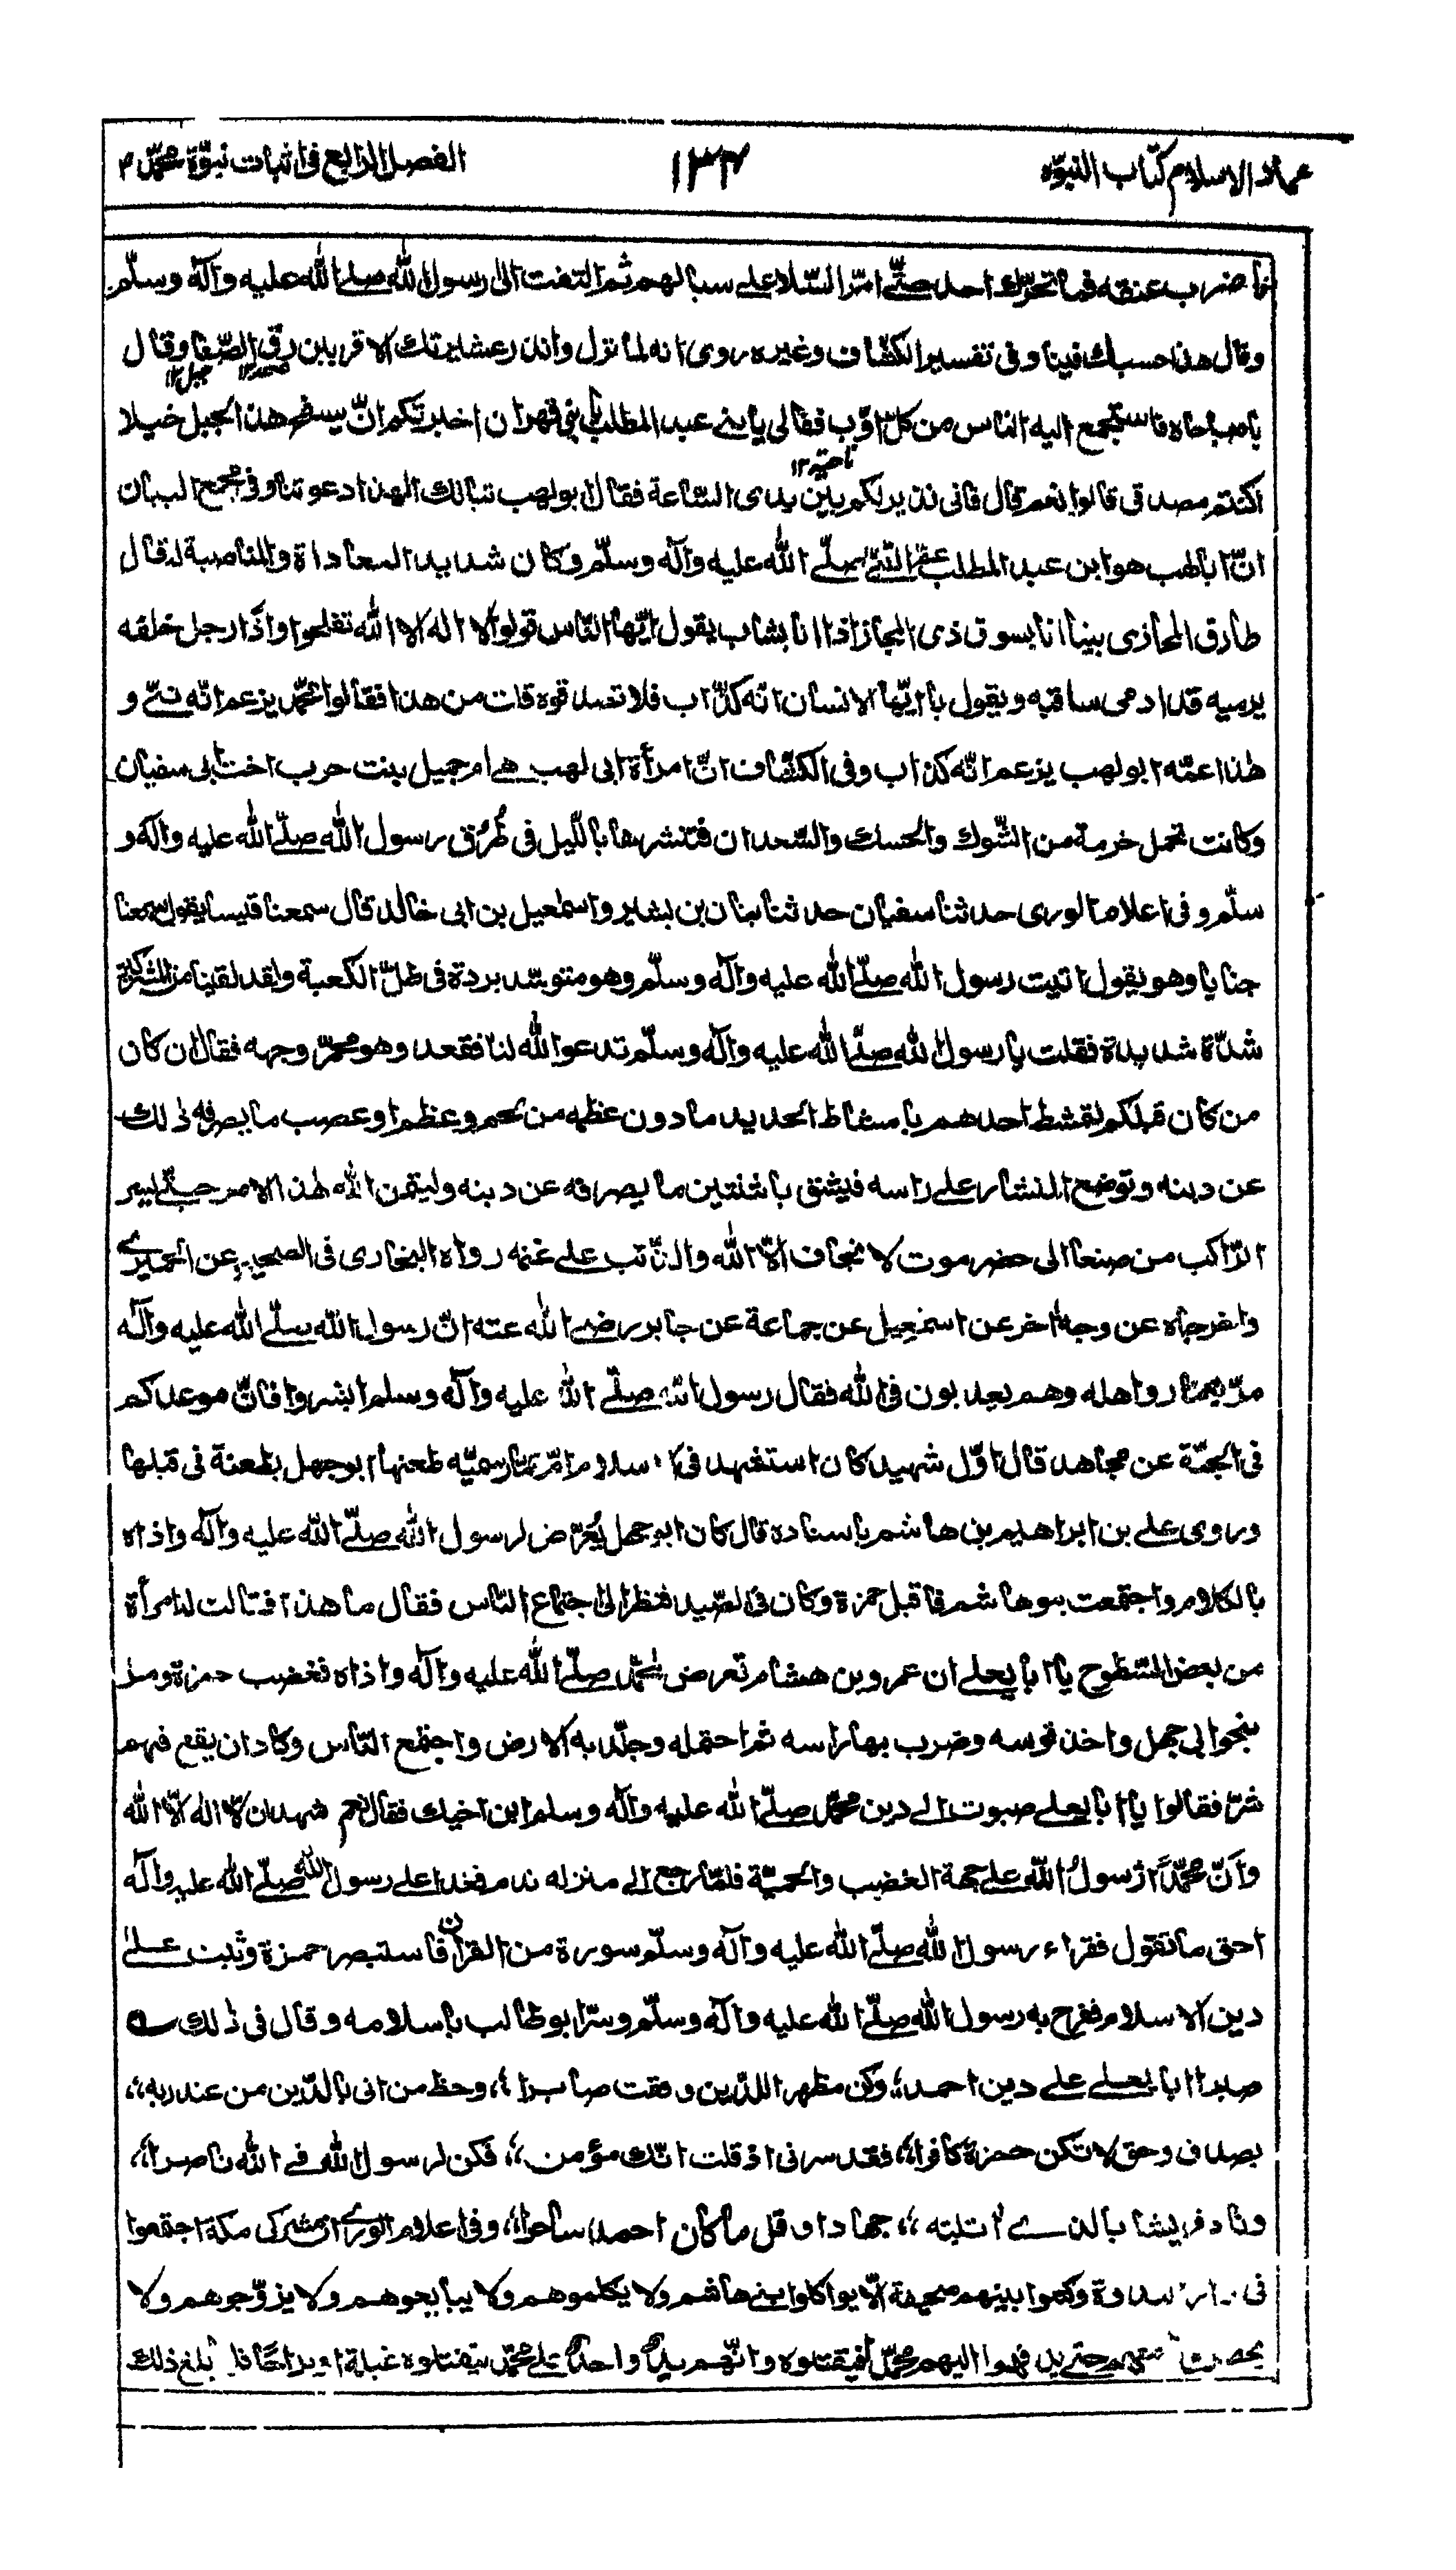 عماد الاسلام كتاب النبوّه ١٣٤ الفصل الرابع فى اثبات نبوّة محمّد ص
ضرب عنقه فما تحرّك احد حتّى امرّ السّلا على سبالهم ثم التفت الى رسول الله صلى الله عليه وآله وسلّم
وقال هذا حسبك فينا وفى تفسير الكشّاف وغيره روى انه لما نزل وانذر عشيرتك الاقربين رقى الصّفا وقال
صعد ١٢ جبل ١٢
يا صباحاه فاستجمع اليه الناس من كلّ اوب فقال يا بنى عبد المطلب يا بنى فهر ان اخبرتكم انّ بسفح هذا الجبل خيلا
ناحية ١٢
اكنتم مصدقى قالوا نعم قال فانى نذير لكم بين يدى السّاعة فقال ابو لهب تبالك الهذا دعوتنا وفى مجمع البيان
انّ ابا لهب هو ابن عبد المطلب عمّ النّبىّ صلّى الله عليه وآله وسلّم وكان شديد المعاداة والمناصبة له قال
طارق المحاربى بينا انا بسوق ذى المجاز اذا انا بشاب يقول ايّها النّاس قولوا لا اله الا الله تفلحوا واذا رجل خلفه
يرميه قد ادمى ساقيه ويقول يا ايّها الانسان انه كذّاب فلا تصدقوه قلت من هذا فقالوا محمّد يزعم انّه نبىّ و
هذا عمّه ابو لهب يزعم انّه كذاب وفى الكشّاف انّ امرأة ابى لهب هى ام جميل بنت حرب اخت ابى سفيان
وكانت تحمل حزمة من الشّوك والحسك والسّعدان فتنشرها باللّيل فى طُرُق رسول الله صلّى الله عليه وآله و
سلّم وفى اعلام الورى حدثنا سفيان حدثنا بنان بن بشير واسمعيل بن ابى خالد قال سمعنا قيسا يقول سمعنا
جنابا وهو يقول اتيت رسول الله صلّى الله عليه وآله وسلّم وهو متوسّد بردة فى ظلّ الكعبة ولقد لقينا من المشركين
شدّة شديدة فقلت يا رسول الله صلّى الله عليه وآله وسلّم تدعو الله لنا فقعد وهو محمرّ وجهه فقال ان كان
من كان قبلكم لقشط احدهم بامشاط الحديد مادون عظمه من لحم وعظم او عصب ما يصرفه ذلك
عن دينه وتوضع المنشار على راسه فيشق باثنتين ما يصرفه عن دينه وليتمن الله هذا الامر حتّى يسير
الرّاكب من صنعا الى حضر موت لا يخاف الّا الله والذّئب على غنمه رواه البخارى فى الصحيح عن الحميرى
واخرجاه عن وجه اخر عن اسمعيل عن جماعة عن جابر رضى الله عنه انّ رسول الله صلّى الله عليه وآله
مرّ بعمّار واهله وهم يعذبون فى الله فقال رسول الله صلّى الله عليه وآله وسلم ابشروا فانّ موعدكم
فى الجنّة عن مجاهد قال اوّل شهيد كان استشهد فى الاسلام امّ عمّار سميّه طعنها ابو جهل بطعنة فى قبلها
وروى على بن ابراهيم بن هاشم باسناده قال كان ابو جهل يُعَرّض لرسول الله صلّى الله عليه وآله واذاه
بالكلام واجتمعت بنو هاشم فاقبل حمزة وكان فى الصّيد فنظر الى اجتماع النّاس فقال ما هذا فقالت له امرأة
من بعض السّطوح يا ابا يعلى ان عمرو بن هشام تعرض لمحمّد صلّى الله عليه وآله واذاه فغضب حمزة ومر
نحو ابى جهل واخذ قوسه وضرب بها راسه ثم احتمله وجلّد به الارض واجتمع النّاس وكاد ان يقع فيهم
شرّ فقالوا يا ابا يعلى صبوت الى دين محمّد صلّى الله عليه وآله وسلم ابن اخيك فقال نعم شهد ان لا اله الّا الله
وانّ محمّداً رسولُ الله على جهة الغضب والحميّة فلمّا رجع الى منزله ندم فغدا على رسول الله صلّى الله عليه وآله
احق ما تقول فقراء رسول الله صلّى الله عليه وآله وسلّم سورة من القرآن فاستبصر حمزة وثبت على
دين الاسلام ففرح به رسول الله صلّى الله عليه وآله وسلّم وسرّ ابو طالب باسلامه وقال فى ذلك
صبرا ابا يعلى على دين احمد، وكن مظهرا للدّين وفقت صابرا، وحظ من اتى بالدّين من عند ربه،
بصدق وحق لا تكن حمزة كافرا، فقد سرنى اذ قلت انّك مؤمن، فكن لرسول الله فى الله ناصرا،
وناد قريشا بالذى اتيته، جهارا وقل ما كان احمد ساحرا، وفى اعلام الورى انّ مشركى مكة اجتمعوا
فى دار الندوة وكتبوا بينهم صحيفة الّا يواكلوا بنى هاشم ولا يكلموهم ولا يبايعوهم ولا يزوّجوهم ولا
حتى يدفعوا اليهم محمّدا فيقتلوه وانّهم يد واحدة على محمّد ليقتلوه غيلة او صراحا فلما بلغ ذلك